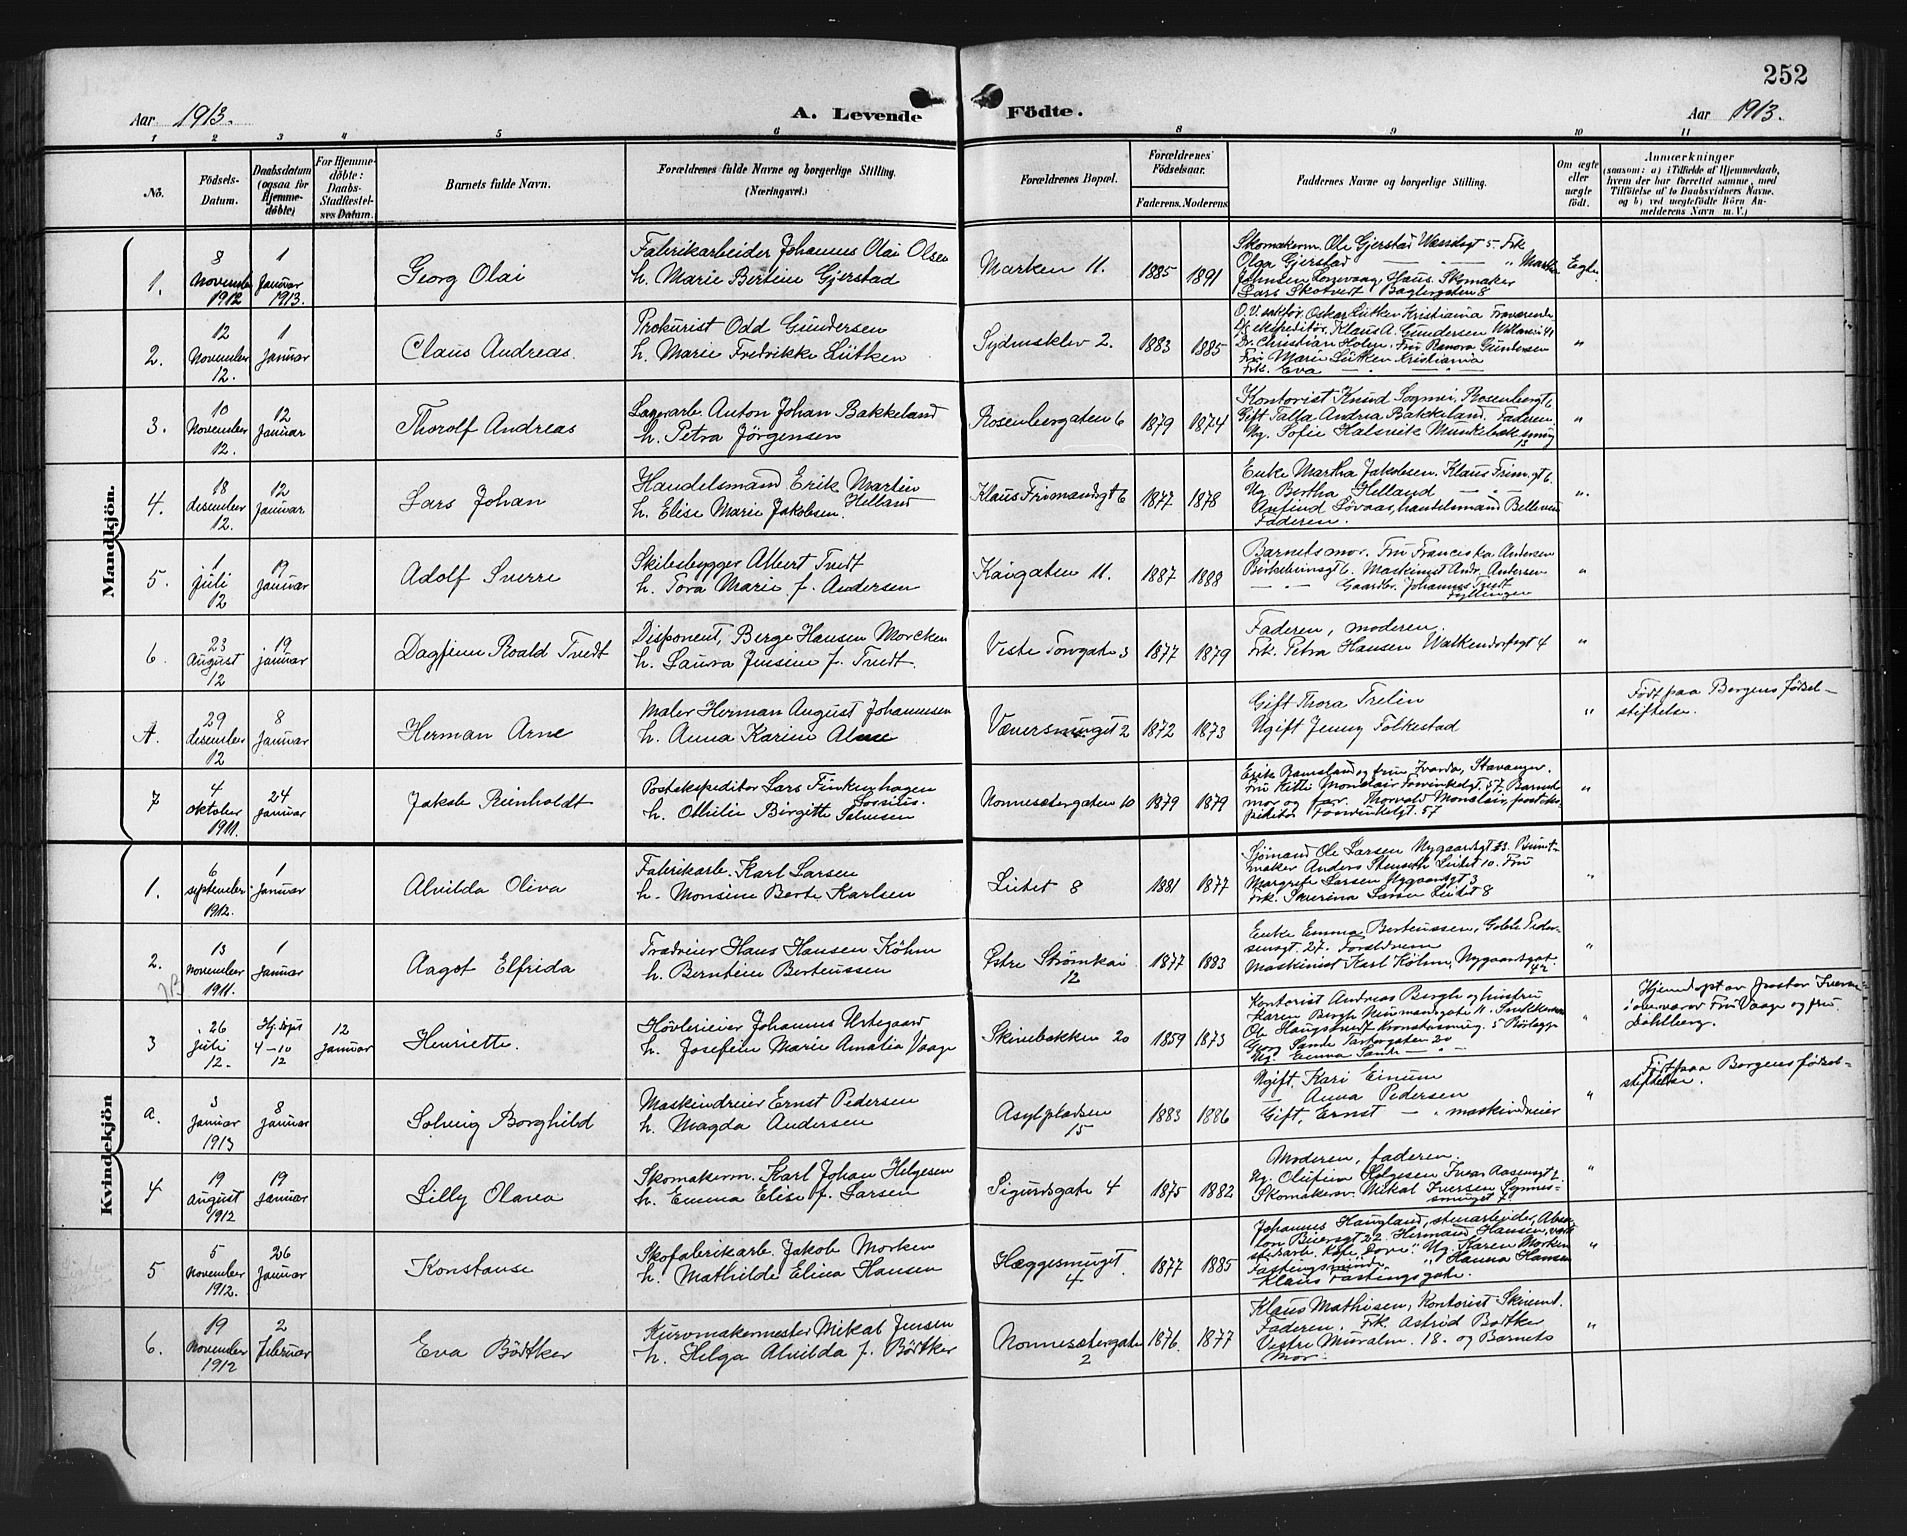 252
Aar 1913.
A. Levende Födte.
Aar 1913.
1 2 3 4 5 6 8 9 10 11
No.
Födsels-Datum.
Daabsdatum (ogsaa for Hjemmedöbte)
For Hjemmedöbte: Daabs-Stadfestelses Datum.
Barnets fulde Navn.
Forældrenes fulde Navne og borgerlige Stilling. (Næringsvei.)
Forældrenes Bopæl.
Forældrenes Födselsaar.
Faderens. Moderens
Faddernes Navne og borgerlige Stilling.
Om ægte eller uægte födt.
Anmærkninger
(saasom: a) i Tilfælde af Hjemmedaab, hvem der har forrettet samme, med Tilföielse af to Daabsvidners Navne, og b) ved uegtefödte Börn Anmelderens Navn m. V.)
Mandkjön.
1. 8 November 1912 1 Januar 1913.
Georg Olai
Fabrikarbeider Johannes Olai Olsen
h. Marie Bertine Gjerstad
Marken 11. 1885 1891
Skomakerm. Ole Gjerstad
Olga Gjerstad
Lars Skotvedt
Egte.
2. 12 November 12. 1 Januar
Claus Andreas.
Prokurist Odd Gundersen
h. Marie Fredrikke Lütken
Sydnesklev 2. 1883 1885
Oskar Lütken Kristiania
Klaus A. Gundersen
Dr. Christian Holen. Fru Ranora Gundersen
Fru Marie Lütken Kristiania
Frk. Eva — " —
"
3. 10 November 12. 12 Januar
Thorolf Andreas
Lagerarb. Anton Johan Bakkeland
h. Petra Jörgensen
Rosenbergaten 6 1879 1874
Kontorist Knud Sognei, Rosenbergt 6
Gift Talla Andrea Bakkeland, Faderen
Ug. Sofie Halsvik
"
4. 18 desember 12. 12 Januar
Lars Johan
Handelsmand Erik Martin Helland
h. Elise Marie Jakobsen.
Klaus Frimandsgt 6 1877 1878
Enke Martha Jakobsen. Klaus Frim.gt 6.
Ug. Bertha Helland — " —
Anfind Lövaas, handelsmand
Faderen.
"
5. 1 juli 12 19 januar
Adolf Sverre
Skibsbygger Albert Tvedt
h. Tora Marie f. Andersen
Kaigaten 11. 1887 1888
Barnets mor. Fru Franciska Andersen
Birkebeinsgt 6. Maskinist Andr. Andersen
— " — Gaardbr. Johannes Tvedt
Fyllingen
"
6. 23 August 12 19 januar
Dagfinn Roald Tvedt
Disponent, Berge Hansen Morcken
h. Laura Jensine f. Tvedt.
Vestre Torvgate 3 1877 1879
Faderen, moderen.
Frk. Petra Hansen Walkendorfsgt 4
"
A. 29 desember 12 8 Januar
Herman Arne
Maler Herman August Johannesen
h. Anna Karine
Væversmuget 2 1872 1873
Gift Thora Trelin
Ugift Jenny Folkestad
"
Født paa Bergens fødselstiftelse.
7 4 oktober 1911. 24 januar
Jakob Reinholdt
Postekspeditør Lars Finkenhagen
h. Othilie Birgitte Salvesen
Nonnesætergaten 10 1879 1879
Stavanger.
Barnets mor og far. Thorvald
57
"
Kvindekjön
1. 6 september 1912. 1 Januar
Alvilda Oliva
Fabrikarb. Karl Larsen
h. Monsine Berte Karlsen
Lütet 8 1881 1877
Sjömand Ole Larsen Nygaardsgt 3.
Anders Stenseth
Margrete Larsen Nygaardsgt 3
Frk. Severina Larsen
"
2. 13 november 1911. 1 Januar
Aagot Elfrida
Trædreier Hans Hansen Köhm
h. Berntine Berteussen
Østre Strømkai 12 1877 1883
Enke Emma Berteussen,
27. Foreldrene
Maskinist Karl Köhm, Nygaardsgat 42
"
NB
3 26 juli 12. Hj. døpt 4-10 12 12 januar
Henriette.
Hövlerieier Johannes Urtegaard
h. Josefine Marie Amalia Vaage
Skivebakken 20 1859 1873
Kontorist Andreas Bergh og hustru
Karen Bergh Neumandsgate 11.
Georg Sande
Ug. Emma Sande — " —
"
Hjemdøpt av pastor
i overvær av Fru Vaage og fru
Dahlberg.
a. 3 Januar 1913 8 januar
Solveig Borghild
Maskindreier Ernst Pedersen
h. Magda Andersen
Asylpladsen 15 1883 1886
Ugift. Kari Einum
— Anna Pedersen
Gift, Ernst — " maskindreier
"
Født paa Bergens fødselstiftelse.
4 19 august 1912 19 Januar
Lilly Olava
Skomakerm. Karl Johan Helgesen
h. Emma Elise f. Larsen
Sigurdsgate 4 1875 1882
Moderen, faderen.
Ug. Olutine Helgesen Ivar Aasensgt 2.
Skomakersv. Mikal Iversen
"
5 5 november 1912. 26 januar
Konstanse
Skofabrikarb. Jakob Morken
h. Mathilde Elina Hansen
Hæggesmuget 4 1877 1885
Johannes Haugland, stenarbeider,
Beiersgt 22. Hermand Hansen,
Ug. Karen Morken
" Hanna Hansen
Klaus Fastingsgate.
"
6. 19 November 1912 2 februar
Eva Bödtker
Kurvmakermester Mikal Jensen
h. Helga Alvilda f. Bödtker
Nonnesætergate 2 1876. 1877
Klaus Mathisen, Kontorist
Faderen. Frk. Astrid Bödtker
Vestre Muralm. 18. og Barnets
Mor.
"